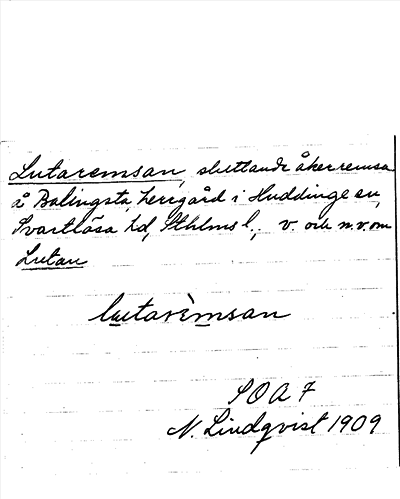 Lutaremsan, sluttande åkerremsa
å Balingsta, herrgård i Huddinge sn,
Svartlösa hd, Sthlms l., v. och n.v. om
Lutan
lutarèmsan
SOA 7
N. Lindqvist 1909